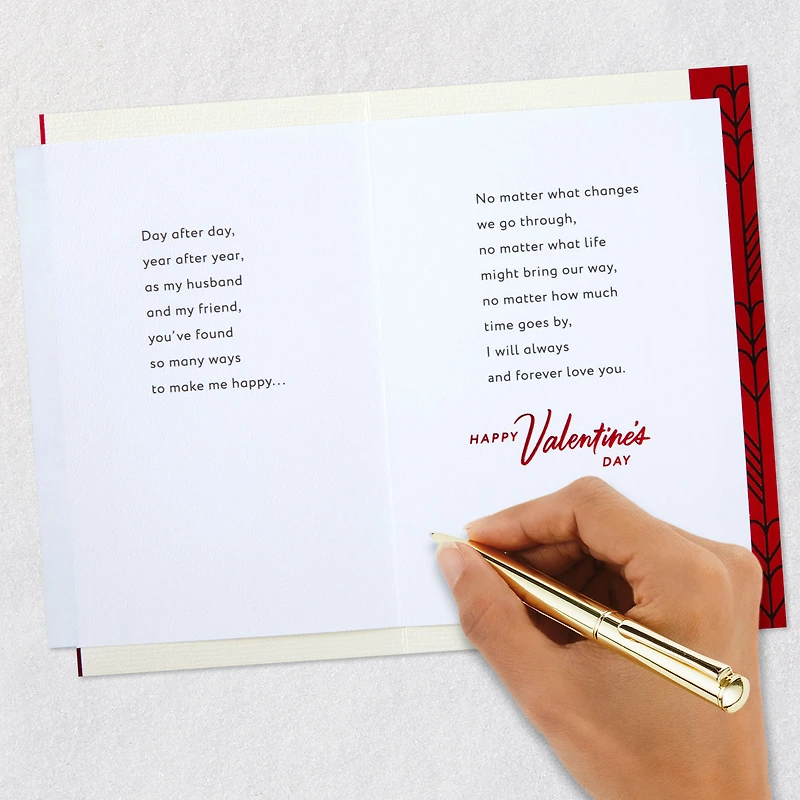 Day after day,
year after year,
as my husband
and my friend,
you've found
so many ways
to make me happy...
No matter what changes
we go through,
no matter what life
might bring our way,
no matter how much
time goes by,
I will always
and forever love you.
HAPPY Valentine's
DAY